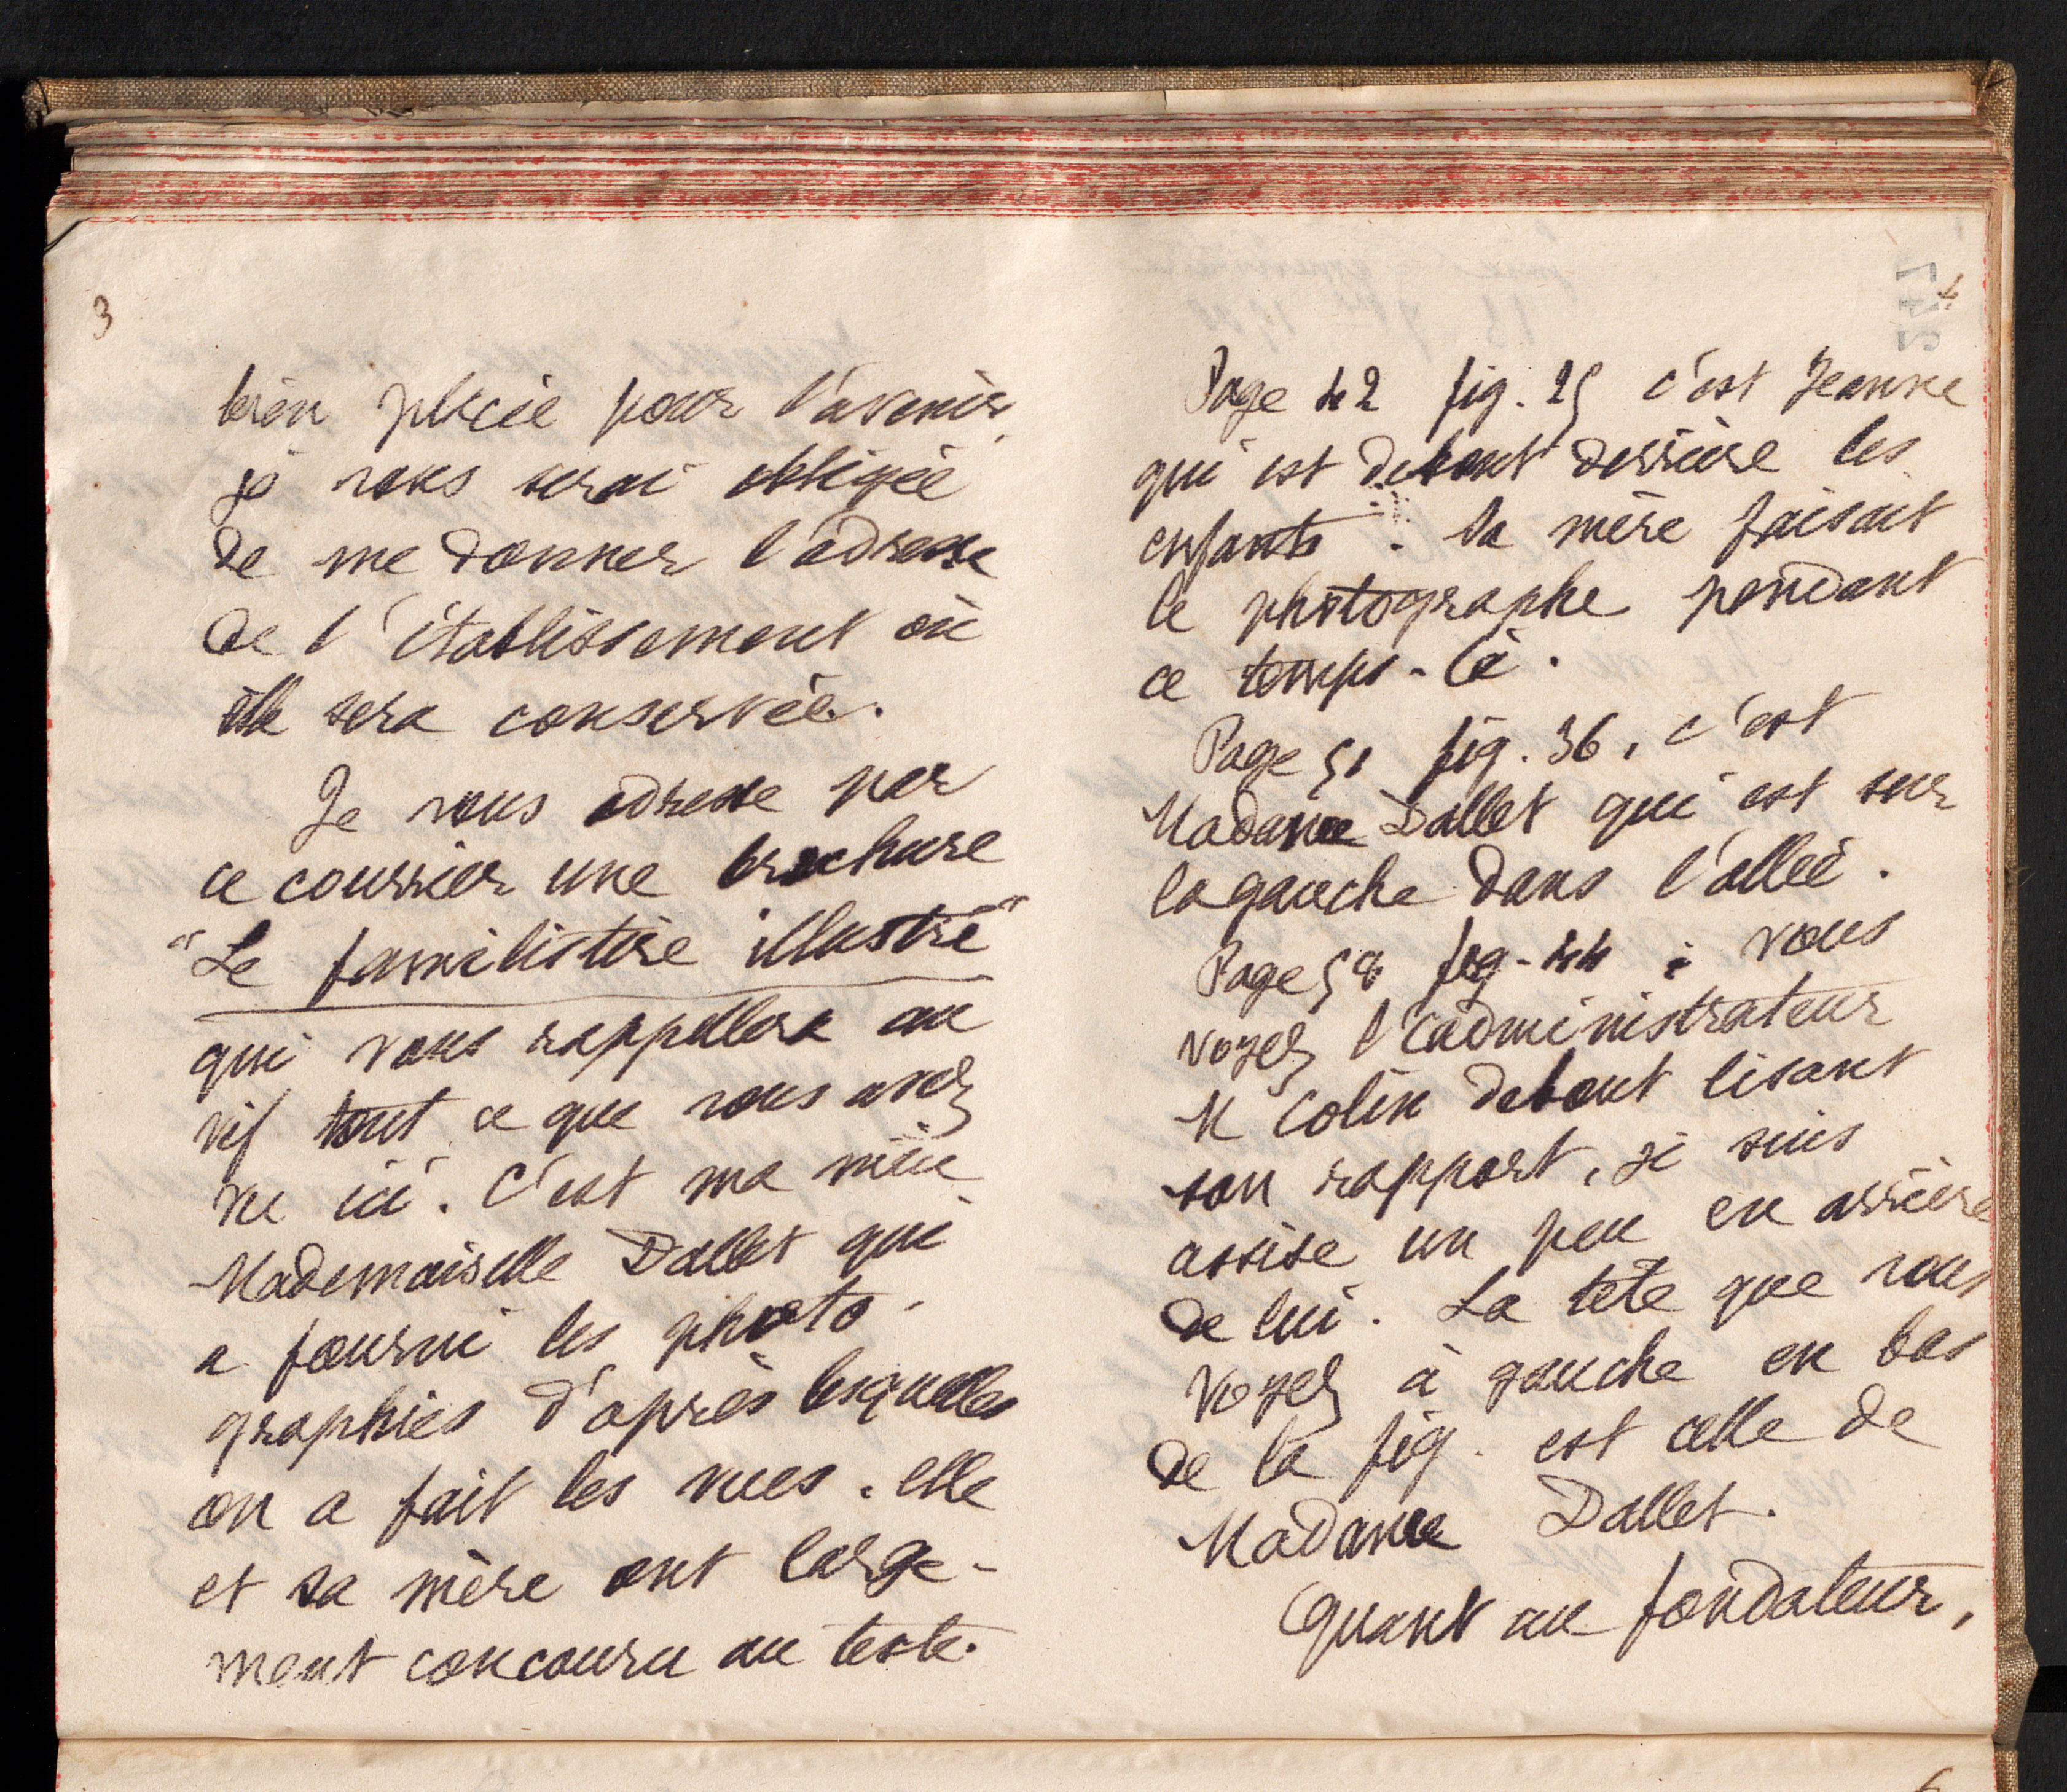 3
bien placée pour l'avenir,
je vous serai obligée
de me donner l'adresse
de l'établissement où
elle sera conservée.
Je vous adresse par
ce courrier une brochure
"Le familistère illustré"
qui vous rappellera au
vif tout ce que vous avez
vu ici. C'est ma nièce
Mademoiselle Dallet qui
a fourni les photo-
graphies d'après lesquelles
on a fait les vues. elle
et sa mère ont large-
ment concouru au texte.
4
247
Page 42 fig. 25 c'est Jeanne
qui est debout derrière les
enfants. Sa mère faisait
le photographe pendant
ce temps-là.
Page 51 fig. 36, c'est
Madame Dallet qui est sur
la gauche dans l'allée.
Page 58 fig. 44 : vous
voyez l'administrateur
M Colin debout lisant
son rapport, je suis
assise un peu en arrière
de lui. La tête que vous
voyez à gauche en bas
de la fig. est celle de
Madame Dallet.
Quant au fondateur,